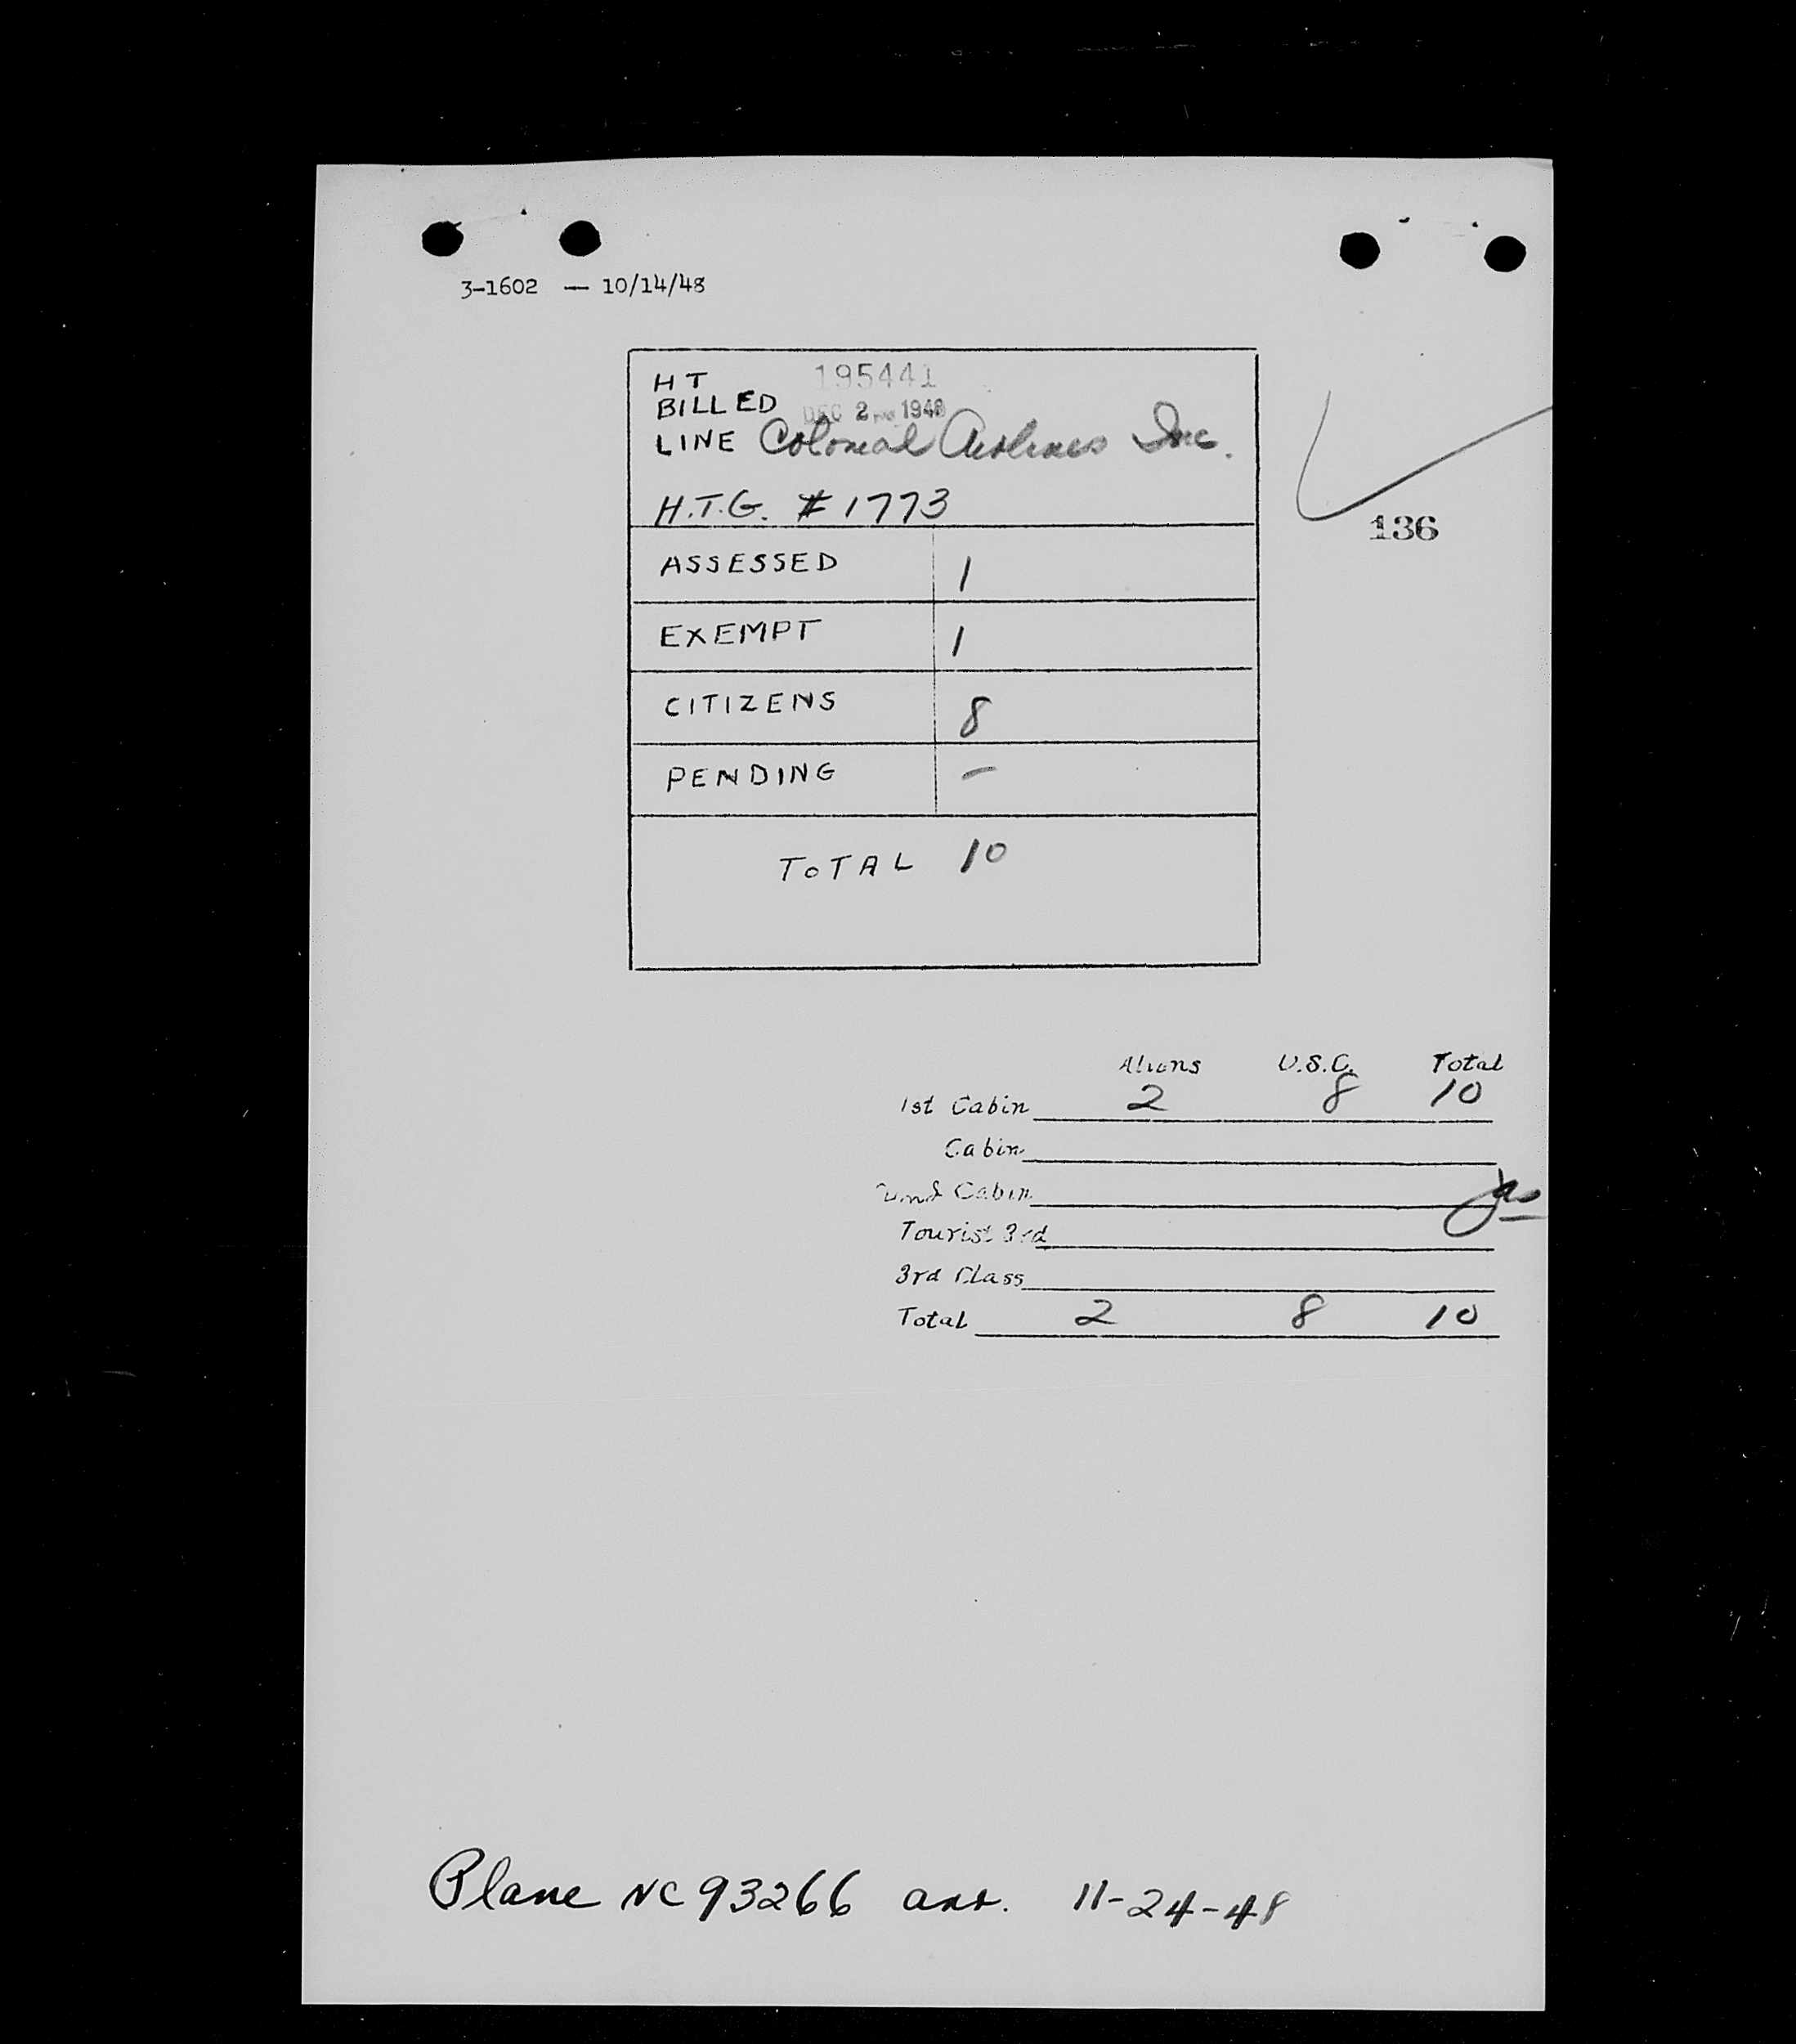 3-1602 — 10/14/48
HT 195441
BILLED DEC 2 1948
LINE Colonial Airlines Inc.
H.T.G. # 1773
136
ASSESSED 1
EXEMPT 1
CITIZENS 8
PENDING –
TOTAL 10
Aliens U.S.C. Total
1st Cabin 2 8 10
Cabin
2nd Cabin
Tourist 3rd
3rd Class
Total 2 8 10
Plane NC 93266 arr. 11-24-48